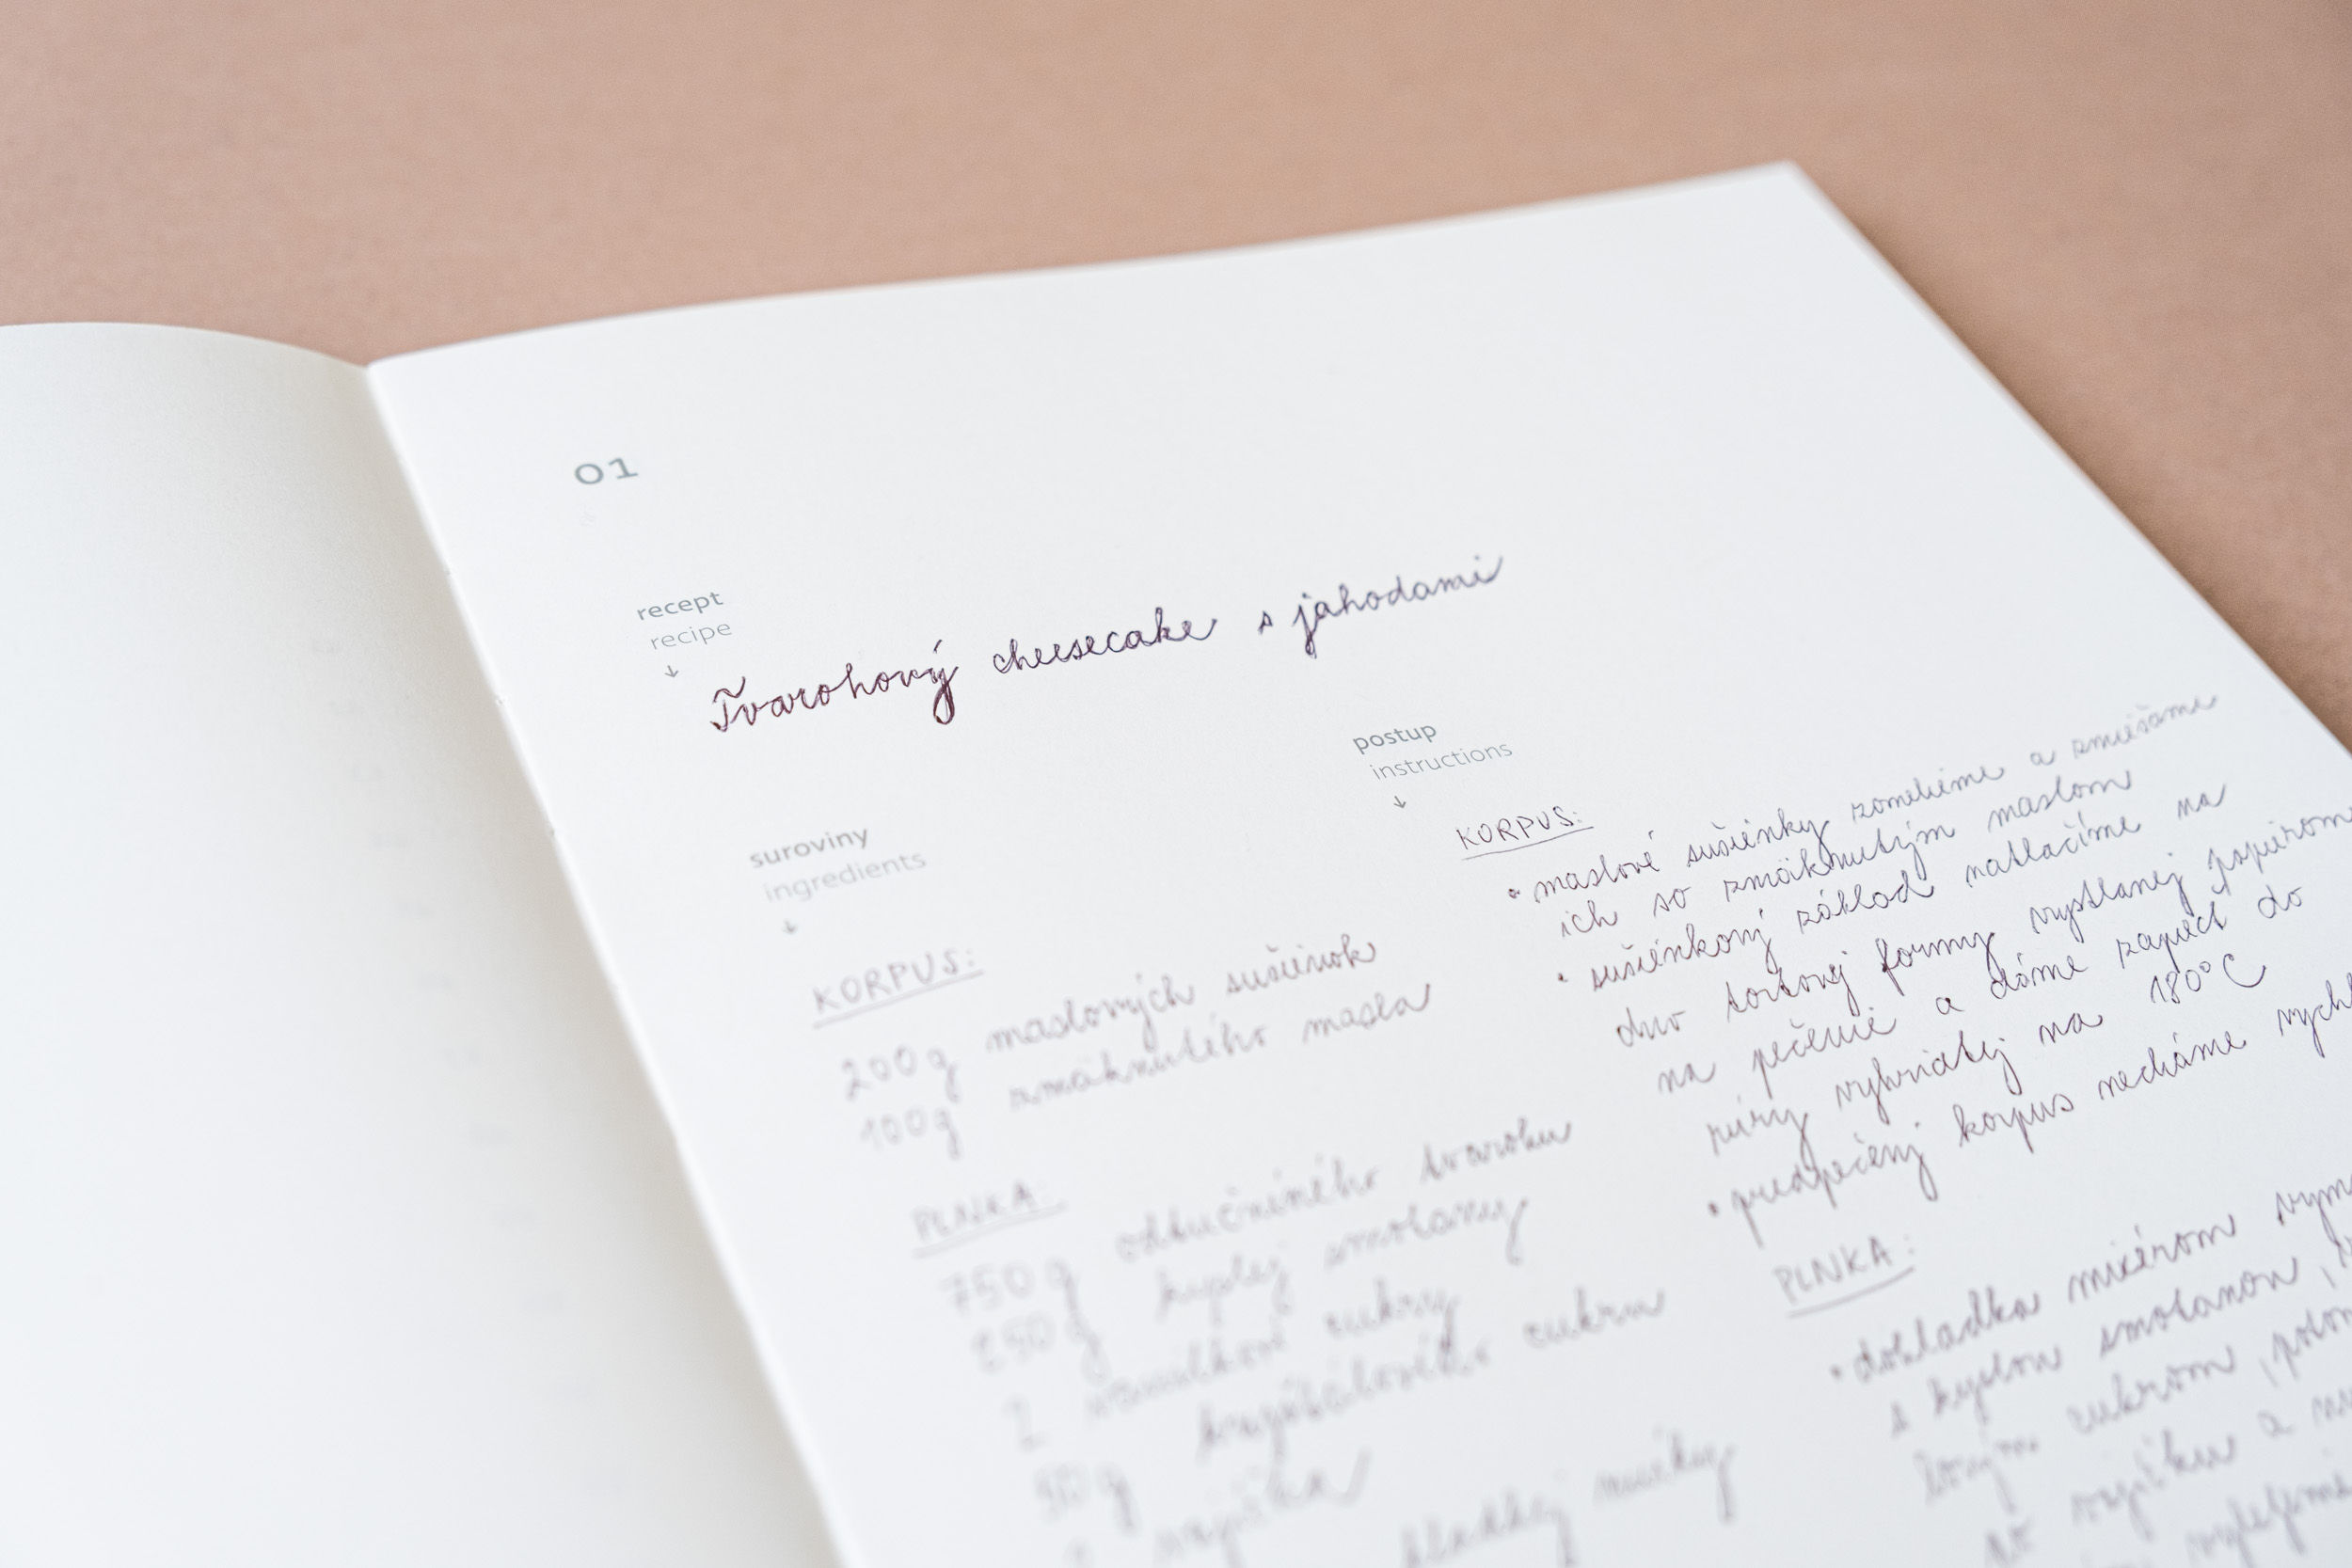 01
recept
recipe
↓
Tvarohový cheesecake s jahodami
suroviny
ingredients
↓
KORPUS:
200g maslových sušienok
100g zmäknutého masla
PLNKA:
750g odtučneného tvarohu
250g kyslej smotany
2 vanilkové cukry
90g kryštálového cukru
vajíčka
hladkej múky
postup
instructions
↓
KORPUS:
• maslové sušienky zomelieme a zmiešame
ich so zmäknutým maslom
• sušienkový základ natlačíme na
dno tortovej formy vystlanej papierom
na pečenie a dáme zapiecť do
rúry vyhriatej na 180°C
• predpečený korpus necháme vychl
PLNKA:
• dohladka mixérom vym
s kyslou smotanou,
cukrom, potom
vajíčku a